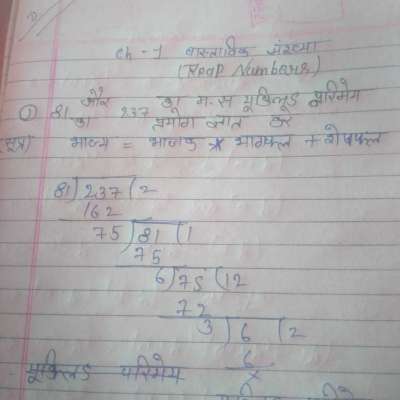 ch - 1 वास्तविक संख्या
(Real Numbers)
① 81 और 237 का म.स यूक्लिड परिमेय
का प्रयोग ज्ञात कर
सूत्र) भाज्य = भाजक x भागफल + शेषफल
81)237(2
162
75)81(1
75
6)75(12
72
3)6(2
6
x
यूक्लिड परिमेय